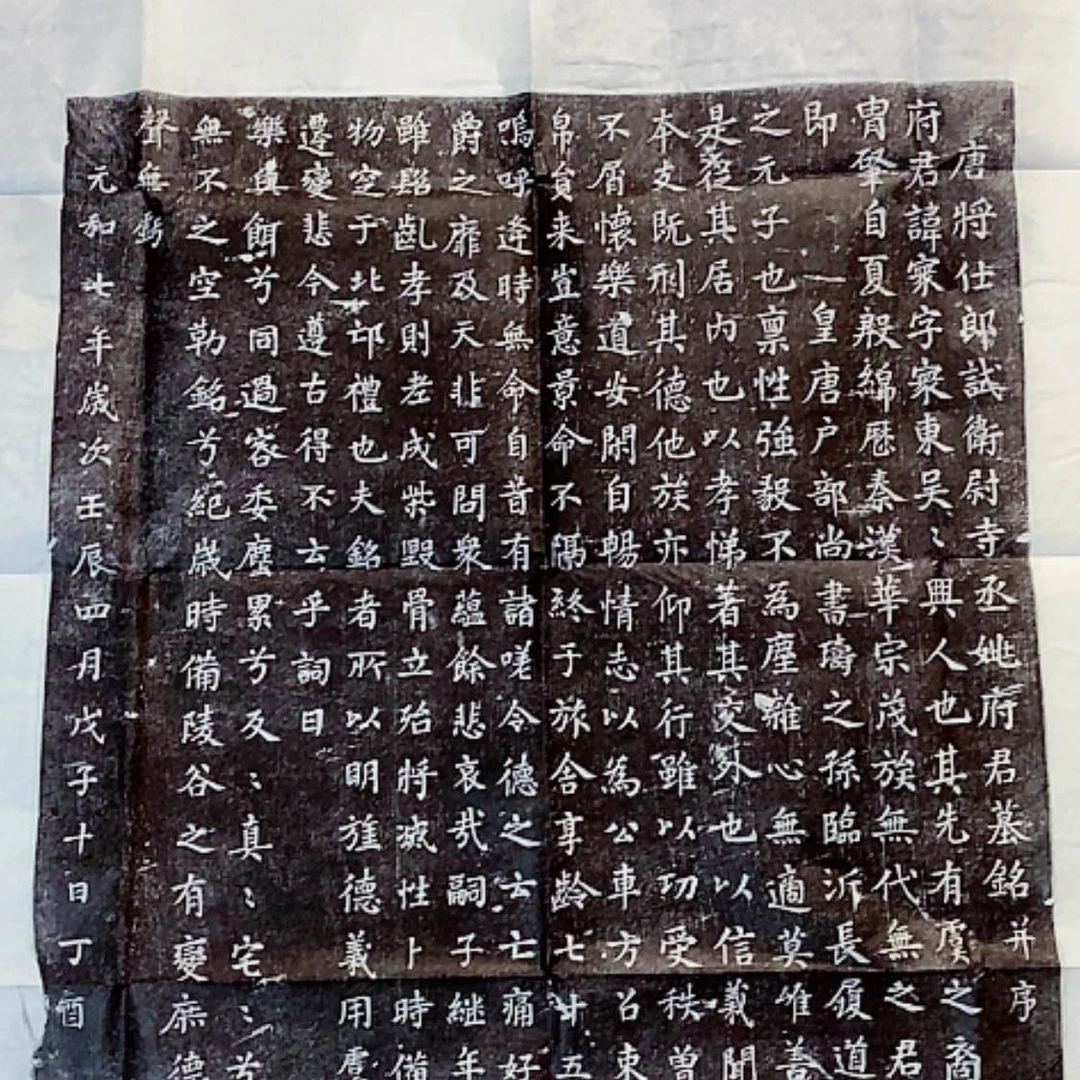 唐將仕郎試衛尉寺丞姚府君墓銘并序
府君諱寀字寀東吳〻興人也其先有虞之裔
胄肇自夏殷綿歷秦漢華宗茂族無代無之君
即皇唐户部尚書璹之孫臨泝長履道
之元子也禀性強毅不為塵雜心無適莫唯善
是從其居內也以孝悌著其交外也以信義聞
本支既刑其德他族亦仰其行雖以功受秩曽
不屑懷樂道安閑自暢情志以為公車方召束
帛賁来豈意景命不隔終于旅舍享齡七十五
嗚呼逢時無命自昔有諸嗟令德之士亡痛好
爵之靡及天悲可問衆蘊餘悲哀哉嗣子継年
雖齠齓孝則老成柴毀骨立殆將滅性卜時備
物空于北邙禮也夫銘者所以明旌德義用
遷變悲今遵古得不云乎詞曰
樂與餌兮同過客委塵累兮反〻真〻宅〻兮
無不之空勒銘兮紀歲時備陵谷之有變庶德
聲無虧
元和七年歲次壬辰四月戊子十日丁酉